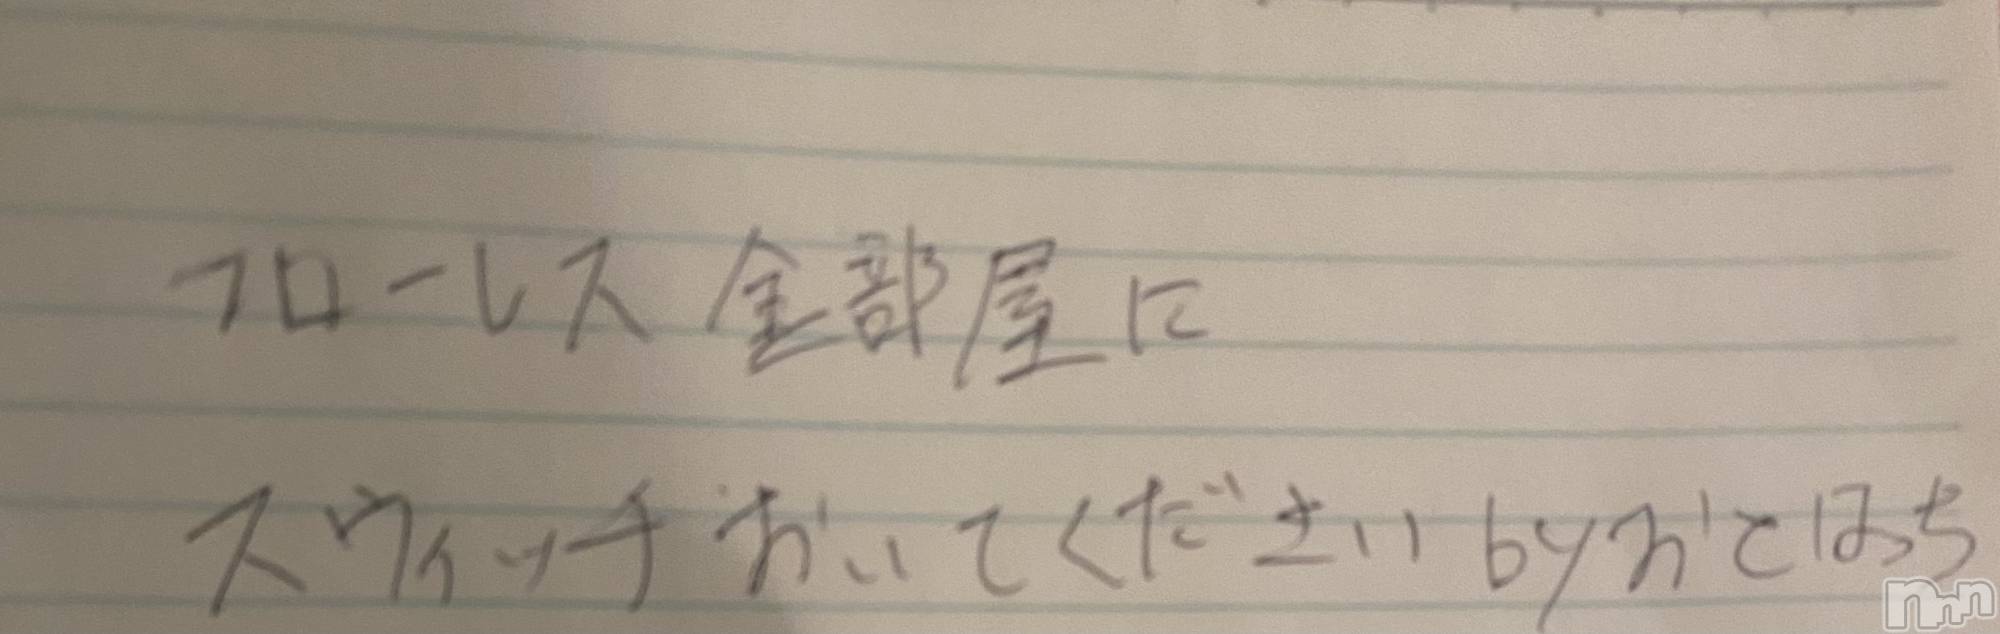 フローレス全部屋に
スウィッチおいてください byおとはっち
nnn